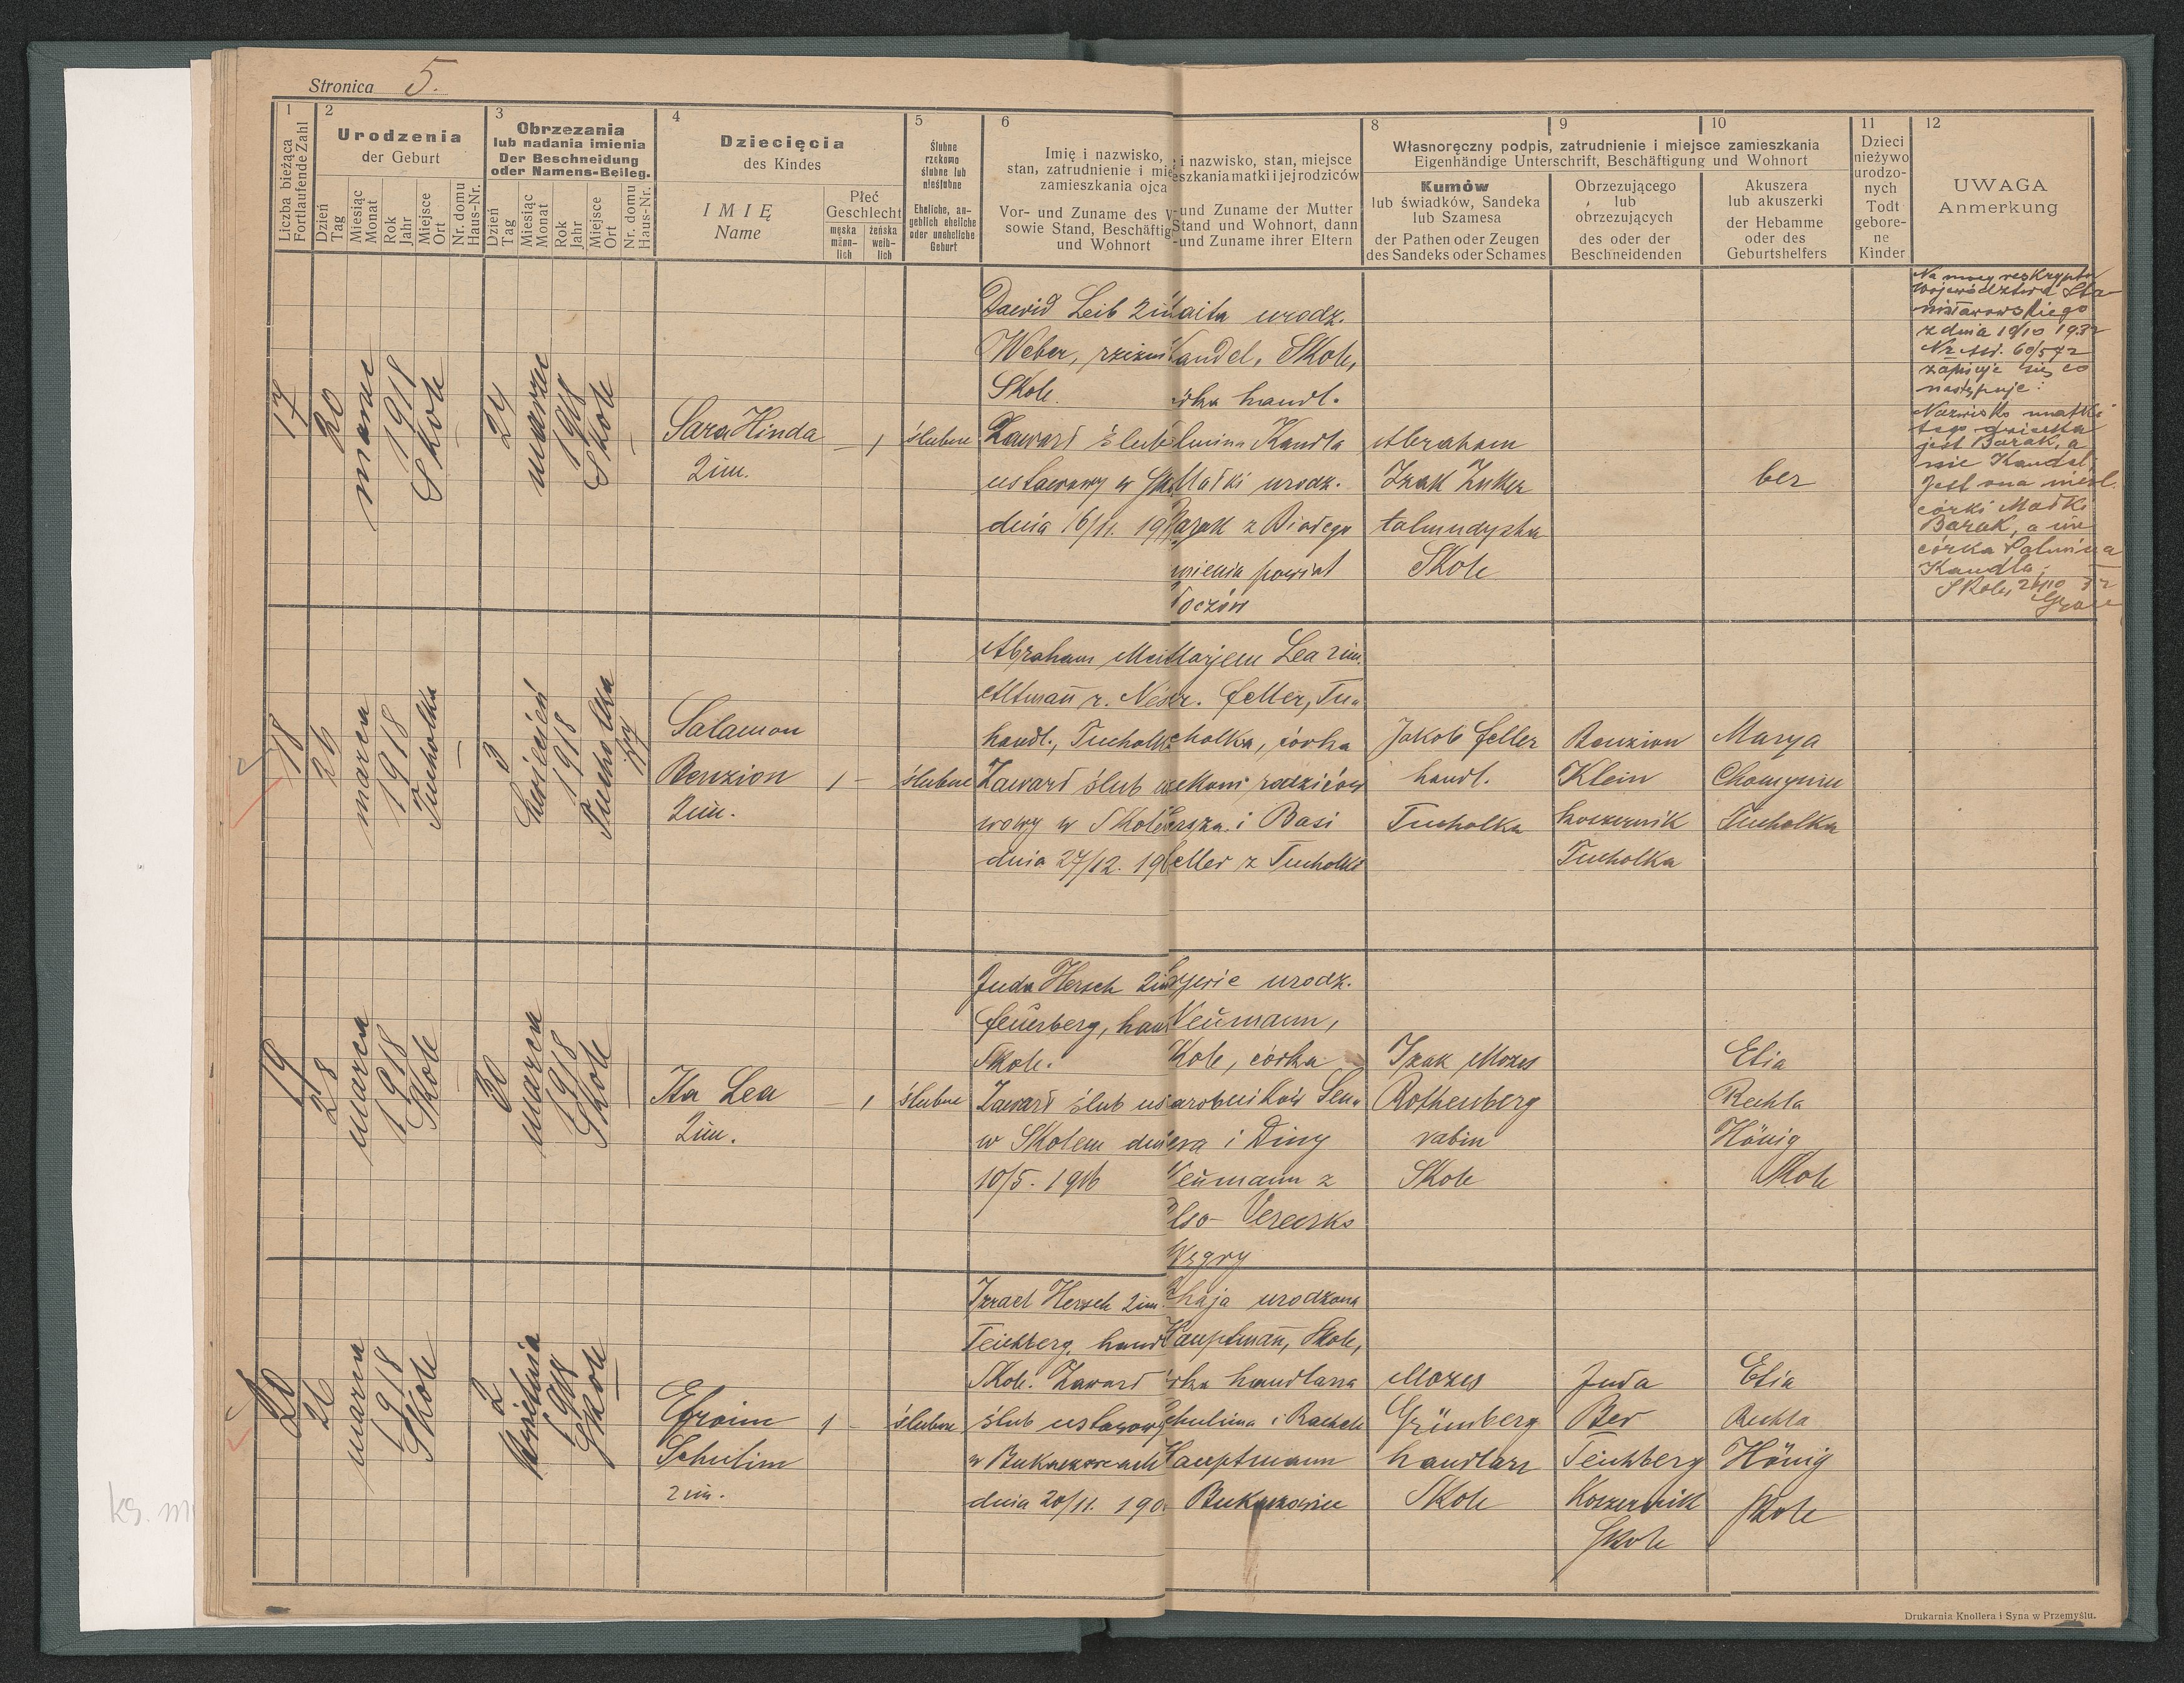 Stronica 5.
1
Liczba bieżąca
Fortlaufende Zahl
2
Urodzenia
der Geburt
Dzień
Tag
Miesiąc
Monat
Rok
Jahr
Miejsce
Ort
Nr. domu
Haus-Nr.
3
Obrzezania
lub nadania imienia
Der Beschneidung
oder Namens-Beileg.
Dzień
Tag
Miesiąc
Monat
Rok
Jahr
Miejsce
Ort
Nr. domu
Haus-Nr.
4
Dziecięcia
des Kindes
IMIĘ
Name
Płeć
Geschlecht
męska
männ-
lich
żeńska
weib-
lich
5
Ślubne
rzekomo
ślubne lub
nieślubne
Eheliche, an-
geblich eheliche
oder uneheliche
Geburt
6
Imię i nazwisko,
stan, zatrudnienie i mie
zamieszkania ojca
Vor- und Zuname des V
sowie Stand, Beschäftig
und Wohnort
i nazwisko, stan, miejsce
eszkania matki i jej rodziców
und Zuname der Mutter
Stand und Wohnort, dann
-und Zuname ihrer Eltern
8
9
10
Własnoręczny podpis, zatrudnienie i miejsce zamieszkania
Eigenhändige Unterschrift, Beschäftigung und Wohnort
Kumów
lub świadków, Sandeka
lub Szamesa
der Pathen oder Zeugen
des Sandeks oder Schames
Obrzezującego
lub
obrzezujących
des oder der
Beschneidenden
Akuszera
lub akuszerki
der Hebamme
oder des
Geburtshelfers
11
Dzieci
nieżywo
urodzo-
nych
Todt
gebore-
ne
Kinder
12
UWAGA
Anmerkung
17
20
marac
1918
Skole
—
24
marzec
1918
Skole
—
Sara Hinda
2im.
— 1
ślubne
Dawid Leib 2im
Weber,
Skole.
Zawarł ślub
ustawowy w
dnia 16/11. 19
urodz.
Kandel, Skole,
handl.
Kandla
Matki urodz.
z Białego
powiat
Abraham
Izak Zuker
talmudysta
Skole
ber
Na mocy reskryptu
Województwa Sta
nisławowskiego
z dnia 19/10 1932
60/572
zapisuje się co
następuje:
Nazwisko matki
tego dziecka
jest Barak, a
nie Kandel;
Jest ona niesl.
córką Matki
Barak, a nie
córka
Kandla.
Skole, 26/10 32
18
26
marca
1918
Tucholka
—
3
kwiecień
1918
Tucholka
Salamon
Benzion
2im.
1 —
ślubne
Abraham
Altmañ r.
handl., Tucholka
Zawarł ślub
wowy w Skole
dnia 27/12. 19
Marjem Lea 2im.
Feller, Tu„
cholka, córka
rodziców
i Basi
Feller z Tucholki
Jakob Feller
handl.
Tucholka
Benzion
Klein
koszernik
Tucholka
Marya
Tucholka
19
28
marca
1918
Skole
—
30
marca
1918
Skole
—
Ita Lea
2im.
— 1
ślubne
Juda Hersch 2im
Feuerberg, han
Skole.
Zawarł ślub us
w Skolem dnia
10/5. 1916
urodz.
Neumann,
Skole, córka
zarobników
i Diny
Neumann z
Vereczke
Węgry
Izak Mozes
Rothenberg
rabin
Skole
Etia
Ruchla
König
Skole
20
26
marca
1918
Skole
—
2
kwietnia
1918
Skole
—
Efroim
Schulim
2im.
1 —
ślubne
Izrael Hersch 2im.
Teichberg, hand
Skole. Zawarł
ślub ustawowy
w Bukaczowcach
dnia 20/11. 190
Chaja urodzona
Hauptmañ, Skole,
córka handlarza
Schulima i Racheli
Hauptmann
Mozes
Grünberg
handlarz
Skole
Juda
Ber
Teichberg
Koszernik
Skole
Etia
Ruchla
König
Skole
Drukarnia Knollera i Syna w Przemyślu.